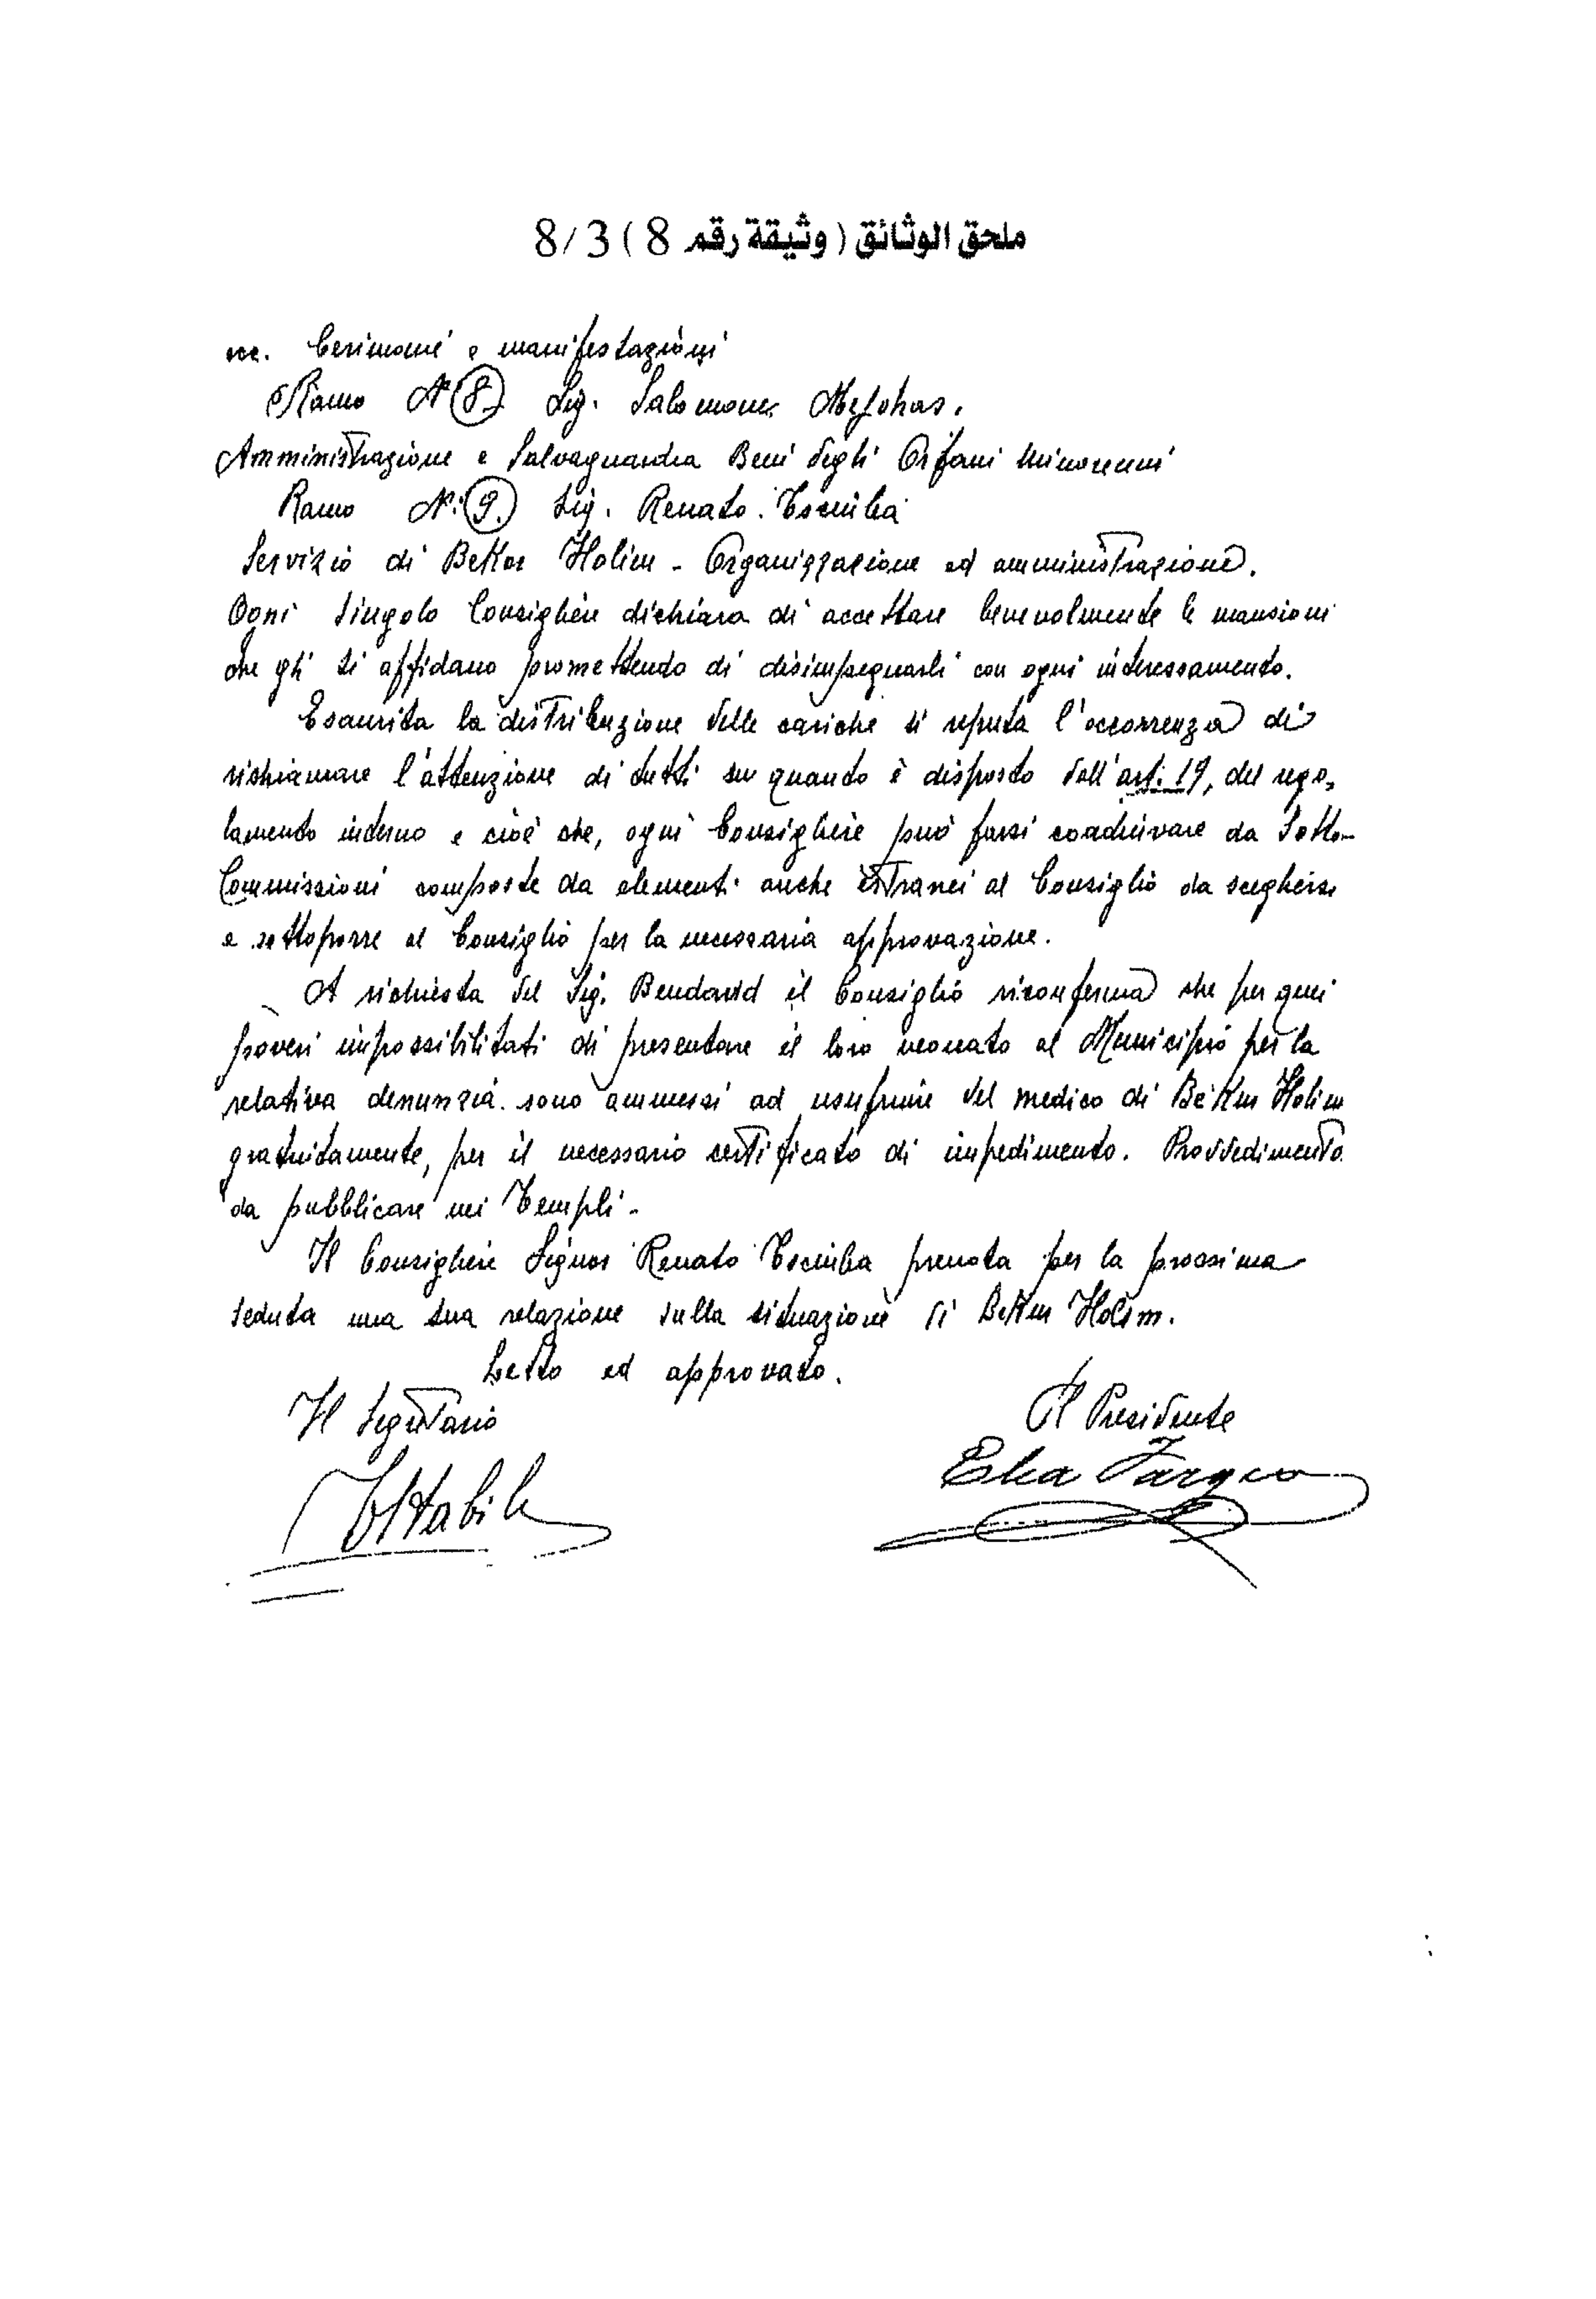 ملحق الوثائق ( وثيقة رقم 8 ) 8/3
ecc. Cerimonie e manifestazioni
Ramo N° 8. Sig. Salomone
Amministrazione e Salvaguardia Beni degli Orfani Minorenni
Ramo N: 9. Sig. Renato
Servizio di Holim - Organizzazione ed amministrazione.
Ogni singolo Consigliere dichiara di accettare benevolmente le mansioni
che gli si affidano promettendo di disimpegnarli con ogni interessamento.
Esaurita la distribuzione delle cariche si reputa l'occorrenza di
richiamare l'attenzione di tutti su quanto è disposto dall'art. 19, del rego-
lamento interno e cioè che, ogni Consigliere può farsi coadiuvare da Sotto-
Commissioni composte da elementi anche estranei al Consiglio da scegliersi
e sottoporre al Consiglio per la necessaria approvazione.
A richiesta del Sig. Bendavid il Consiglio riconferma che per quei
poveri impossibilitati di presentare il loro neonato al Municipio per la
relativa denunzia sono ammessi ad usufruire del medico di Bekur Holim
gratuitamente, per il necessario certificato di impedimento. Provvedimento
da pubblicare nei Templi -
Il Consigliere Signor Renato prenota per la prossima
seduta una sua relazione sulla situazione di Bekur Holim.
Letto ed approvato.
Il Segretario Il Presidente
Elia Fargion